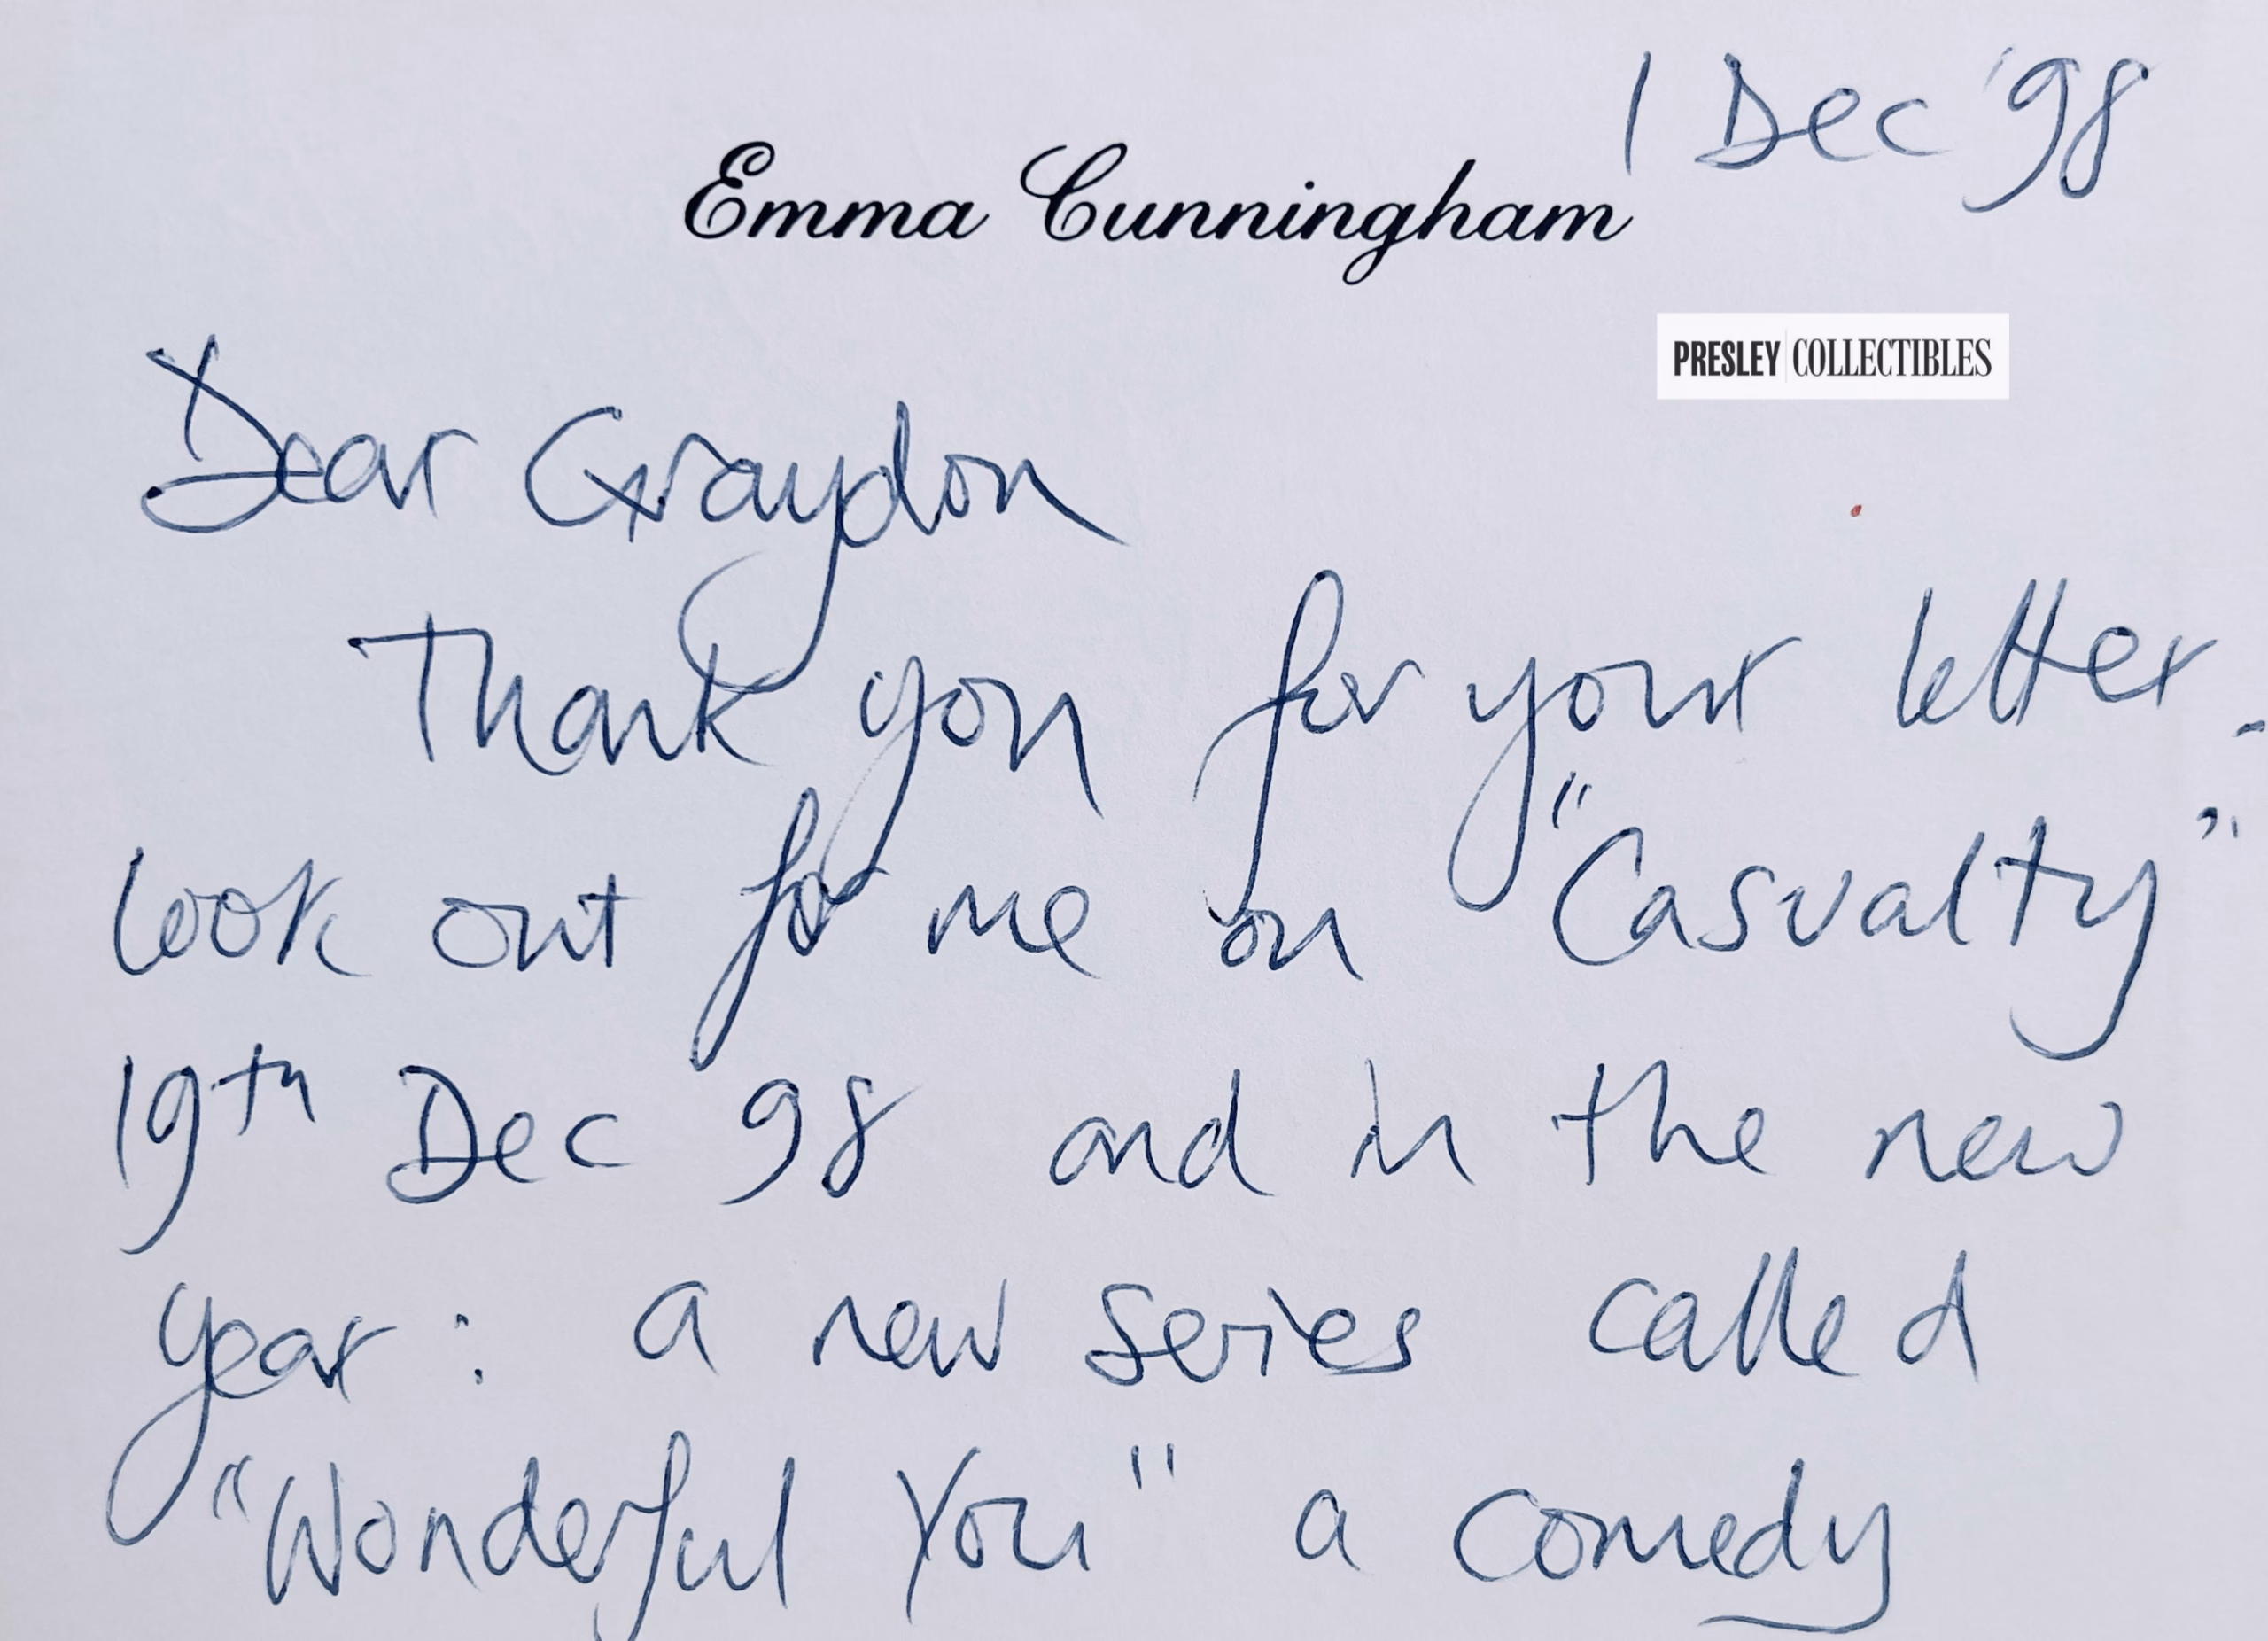 1 Dec '98
Emma Cunningham
PRESLEY COLLECTIBLES
Dear Graydon
Thank you for your letter.
look out for me on "Casualty"
19th Dec 98 and in the new
year: a new series called
"Wonderful You" a comedy